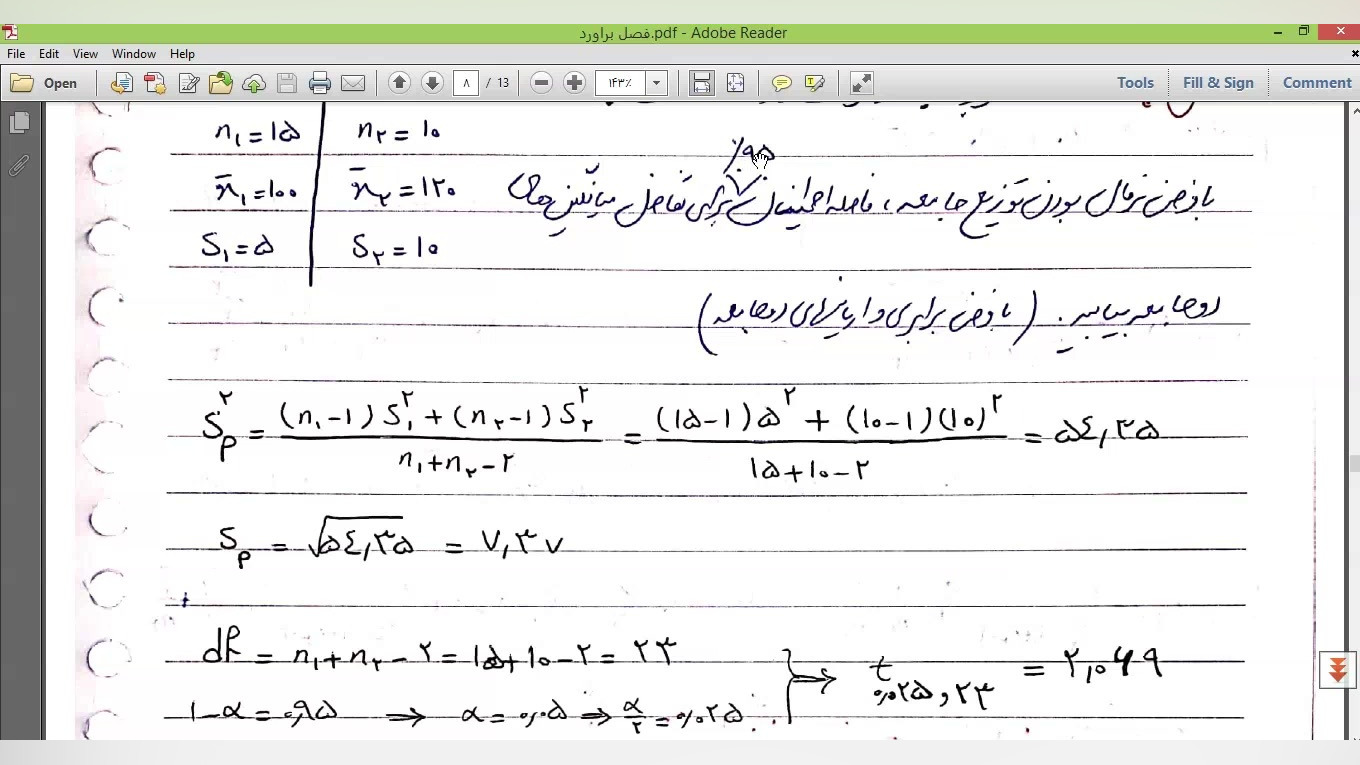 فصل براورد.pdf - Adobe Reader
File Edit View Window Help
Open ۸ / 13 ۱۴۳٪ Tools Fill & Sign Comment
n₁ = ۱۵ n₂ = ۱۰
x̄₁ = ۱۰۰ x̄₂ = ۱۲۰
S₁ = ۵ S₂ = ۱۰
٪۹۵
با فرض نرمال بودن توزیع جامعه، فاصله اطمینان برای تفاضل میانگین های
دو جامعه بیابید. (با فرض برابری واریانسهای دو جامعه)
Sp² = (n₁-۱)S₁² + (n₂-۱)S₂² / n₁+n₂-۲ = (۱۵-۱)۵² + (۱۰-۱)(۱۰)² / ۱۵+۱۰-۲ = ۵٤,۳۵
Sp = √۵٤,۳۵ = ۷,۳۷
df = n₁+n₂-۲ = ۱۵+۱۰-۲ = ۲۳
1-α = ۰,۹۵ ⇒ α = ۰,۰۵ ⇒ α/۲ = ۰,۰۲۵ } ⇒ t ۰,۰۲۵,۲۳ = ۲,۰۶۹